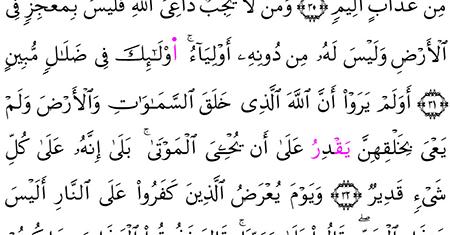 مِنْ عَذَابٍ أَلِيمٍ ﴿٣٠﴾ وَمَن لَّا يُجِبْ دَاعِيَ ٱللَّهِ فَلَيْسَ بِمُعْجِزٍ فِى
ٱلْأَرْضِ وَلَيْسَ لَهُۥ مِن دُونِهِۦٓ أَوْلِيَآءُ ۚ أُوْلَٰٓئِكَ فِى ضَلَٰلٍ مُّبِينٍ
﴿٣١﴾ أَوَلَمْ يَرَوْا۟ أَنَّ ٱللَّهَ ٱلَّذِى خَلَقَ ٱلسَّمَٰوَٰتِ وَٱلْأَرْضَ وَلَمْ
يَعْىَ بِخَلْقِهِنَّ يَقْدِرُ عَلَىٰٓ أَن يُحْـِۧىَ ٱلْمَوْتَىٰ ۚ بَلَىٰٓ إِنَّهُۥ عَلَىٰ كُلِّ
شَىْءٍ قَدِيرٌ ﴿٣٢﴾ وَيَوْمَ يُعْرَضُ ٱلَّذِينَ كَفَرُوا۟ عَلَى ٱلنَّارِ أَلَيْسَ